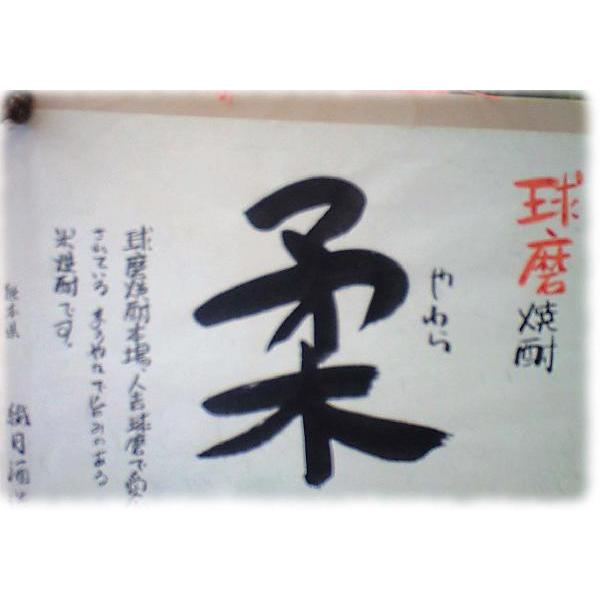 球磨焼酎
やわら
柔
球磨焼酎本場、人吉球磨で愛
されているまろやかで旨みのある
米焼酎です。
熊本県
繊月酒